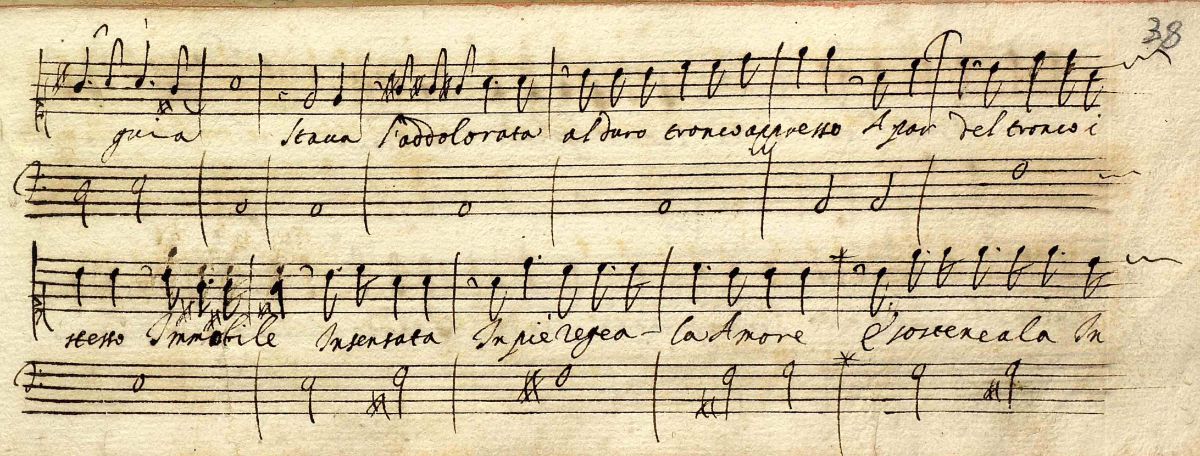 38
guia Staua l'addolorata al duro tronco appresso A par del tronco i
stesso Immobile Insensata In pie regea-la Amore E sosteneala In